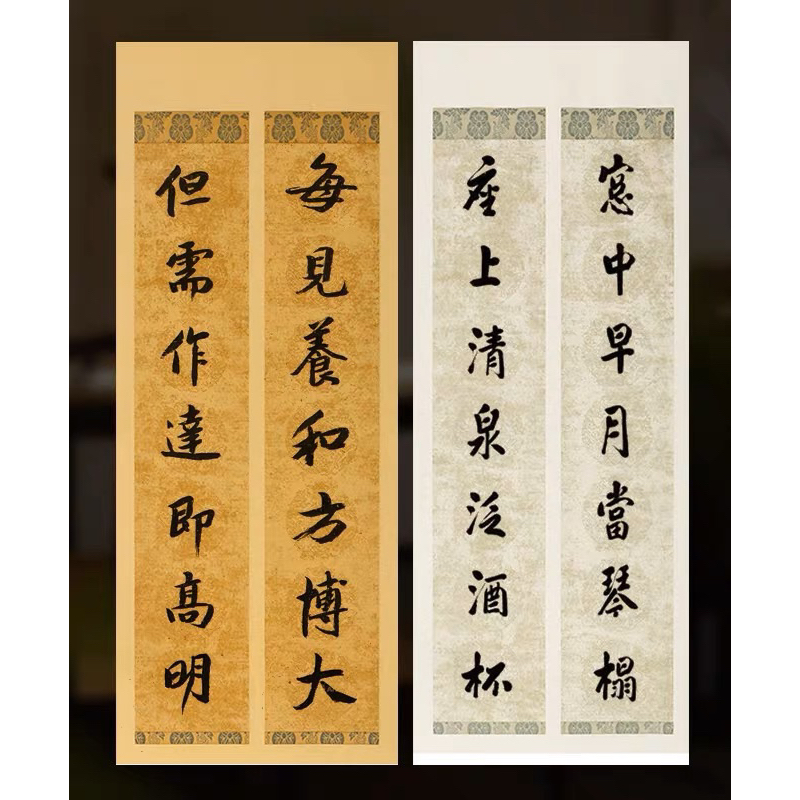 窓中早月當琴榻
座上清泉泛酒杯
每見養和方博大
但需作達即高明